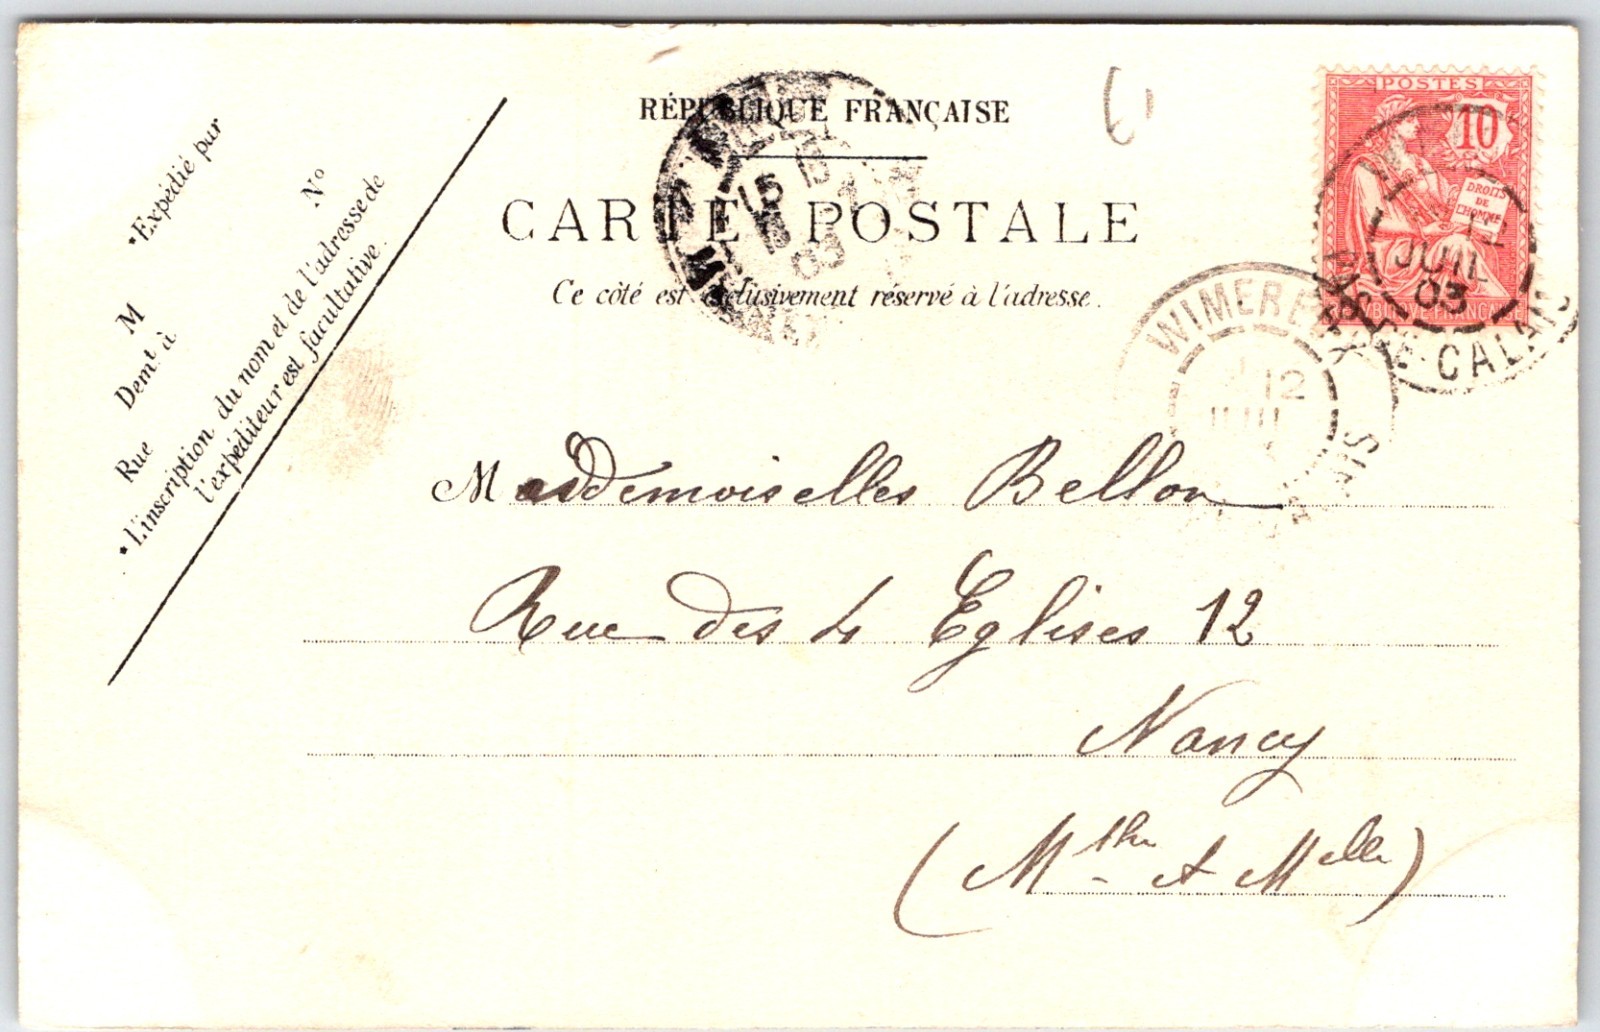 RÉPUBLIQUE FRANÇAISE
CARTE POSTALE
Ce côté est exclusivement réservé à l'adresse.
*Expédié par
M
Demt à
Rue
N°
*L'inscription du nom et de l'adresse de
l'expéditeur est facultative.
POSTES
10
DROITS
DE
L'HOMME
REPUBLIQUE FRANÇAISE
12
JUIL
03
PAS DE CALAIS
WIMEREUX
12
JUIL
15
03
Mesdemoiselles Bellon
Rue des 4 Eglises 12
Nancy
(Mthe et Melle)